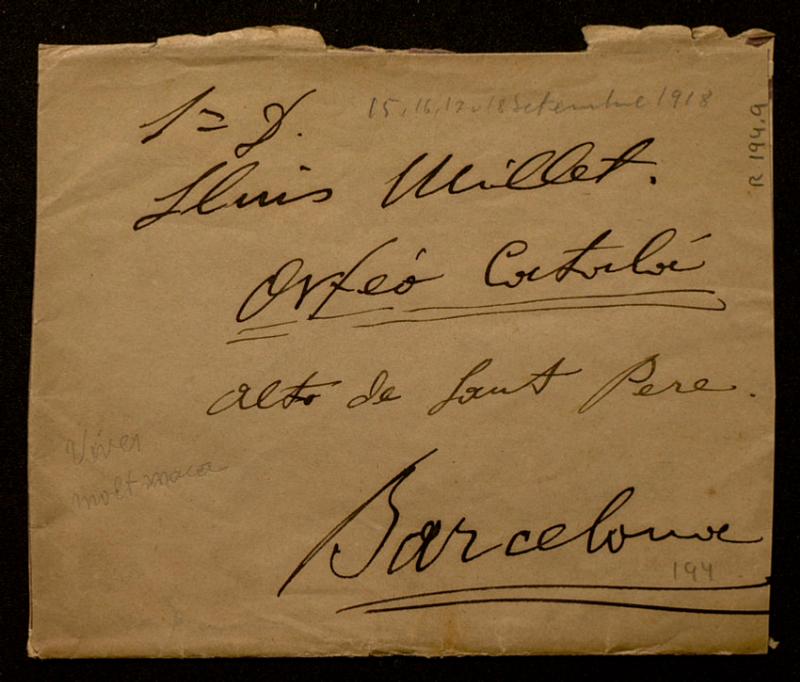 15, 16, 17 i 18 Setembre 1918
R 194.9
Lluis Millet.
Orfeó Catalá
Alto de Sant Pere.
Vives
molt maca
Barcelona
194